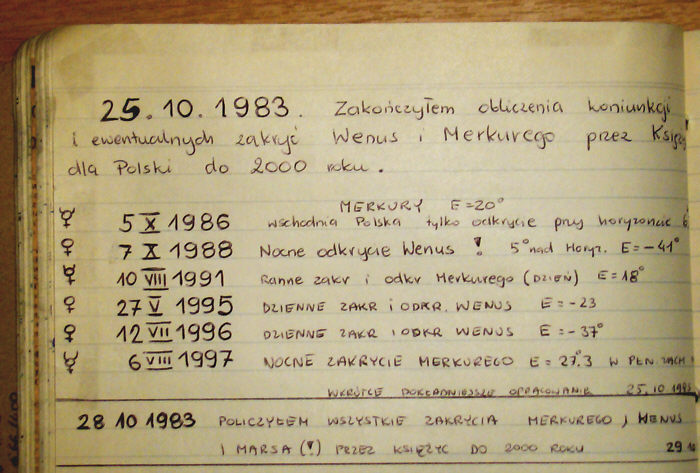 25.10.1983. Zakończyłem obliczenia koniunkcji
i ewentualnych zakryć Wenus i Merkurego przez Księży
dla Polski do 2000 roku.
MERKURY E=20°
☿ 5 X 1986 wschodnia Polska tylko odkrycie przy horyzoncie
♀ 7 X 1988 Nocne odkrycie Wenus ! 5° nad Horyz. E=-41°
☿ 10 VIII 1991 Ranne zakr i odkr Merkurego (DZIEŃ) E=18°
♀ 27 V 1995 DZIENNE ZAKR i ODKR. WENUS E=-23
♀ 12 VII 1996 DZIENNE ZAKR i ODKR WENUS E=-37°
☿ 6 VIII 1997 NOCNE ZAKRYCIE MERKUREGO E=27°.3 W PŁN. ZACH
WKRÓTCE DOKŁADNIEJSZE OPRACOWANIE 25.10 1983
28 10 1983 POLICZYŁEM WSZYSTKIE ZAKRYCIA MERKUREGO, WENUS
I MARSA (!) PRZEZ KSIĘŻYC DO 2000 ROKU 29 10